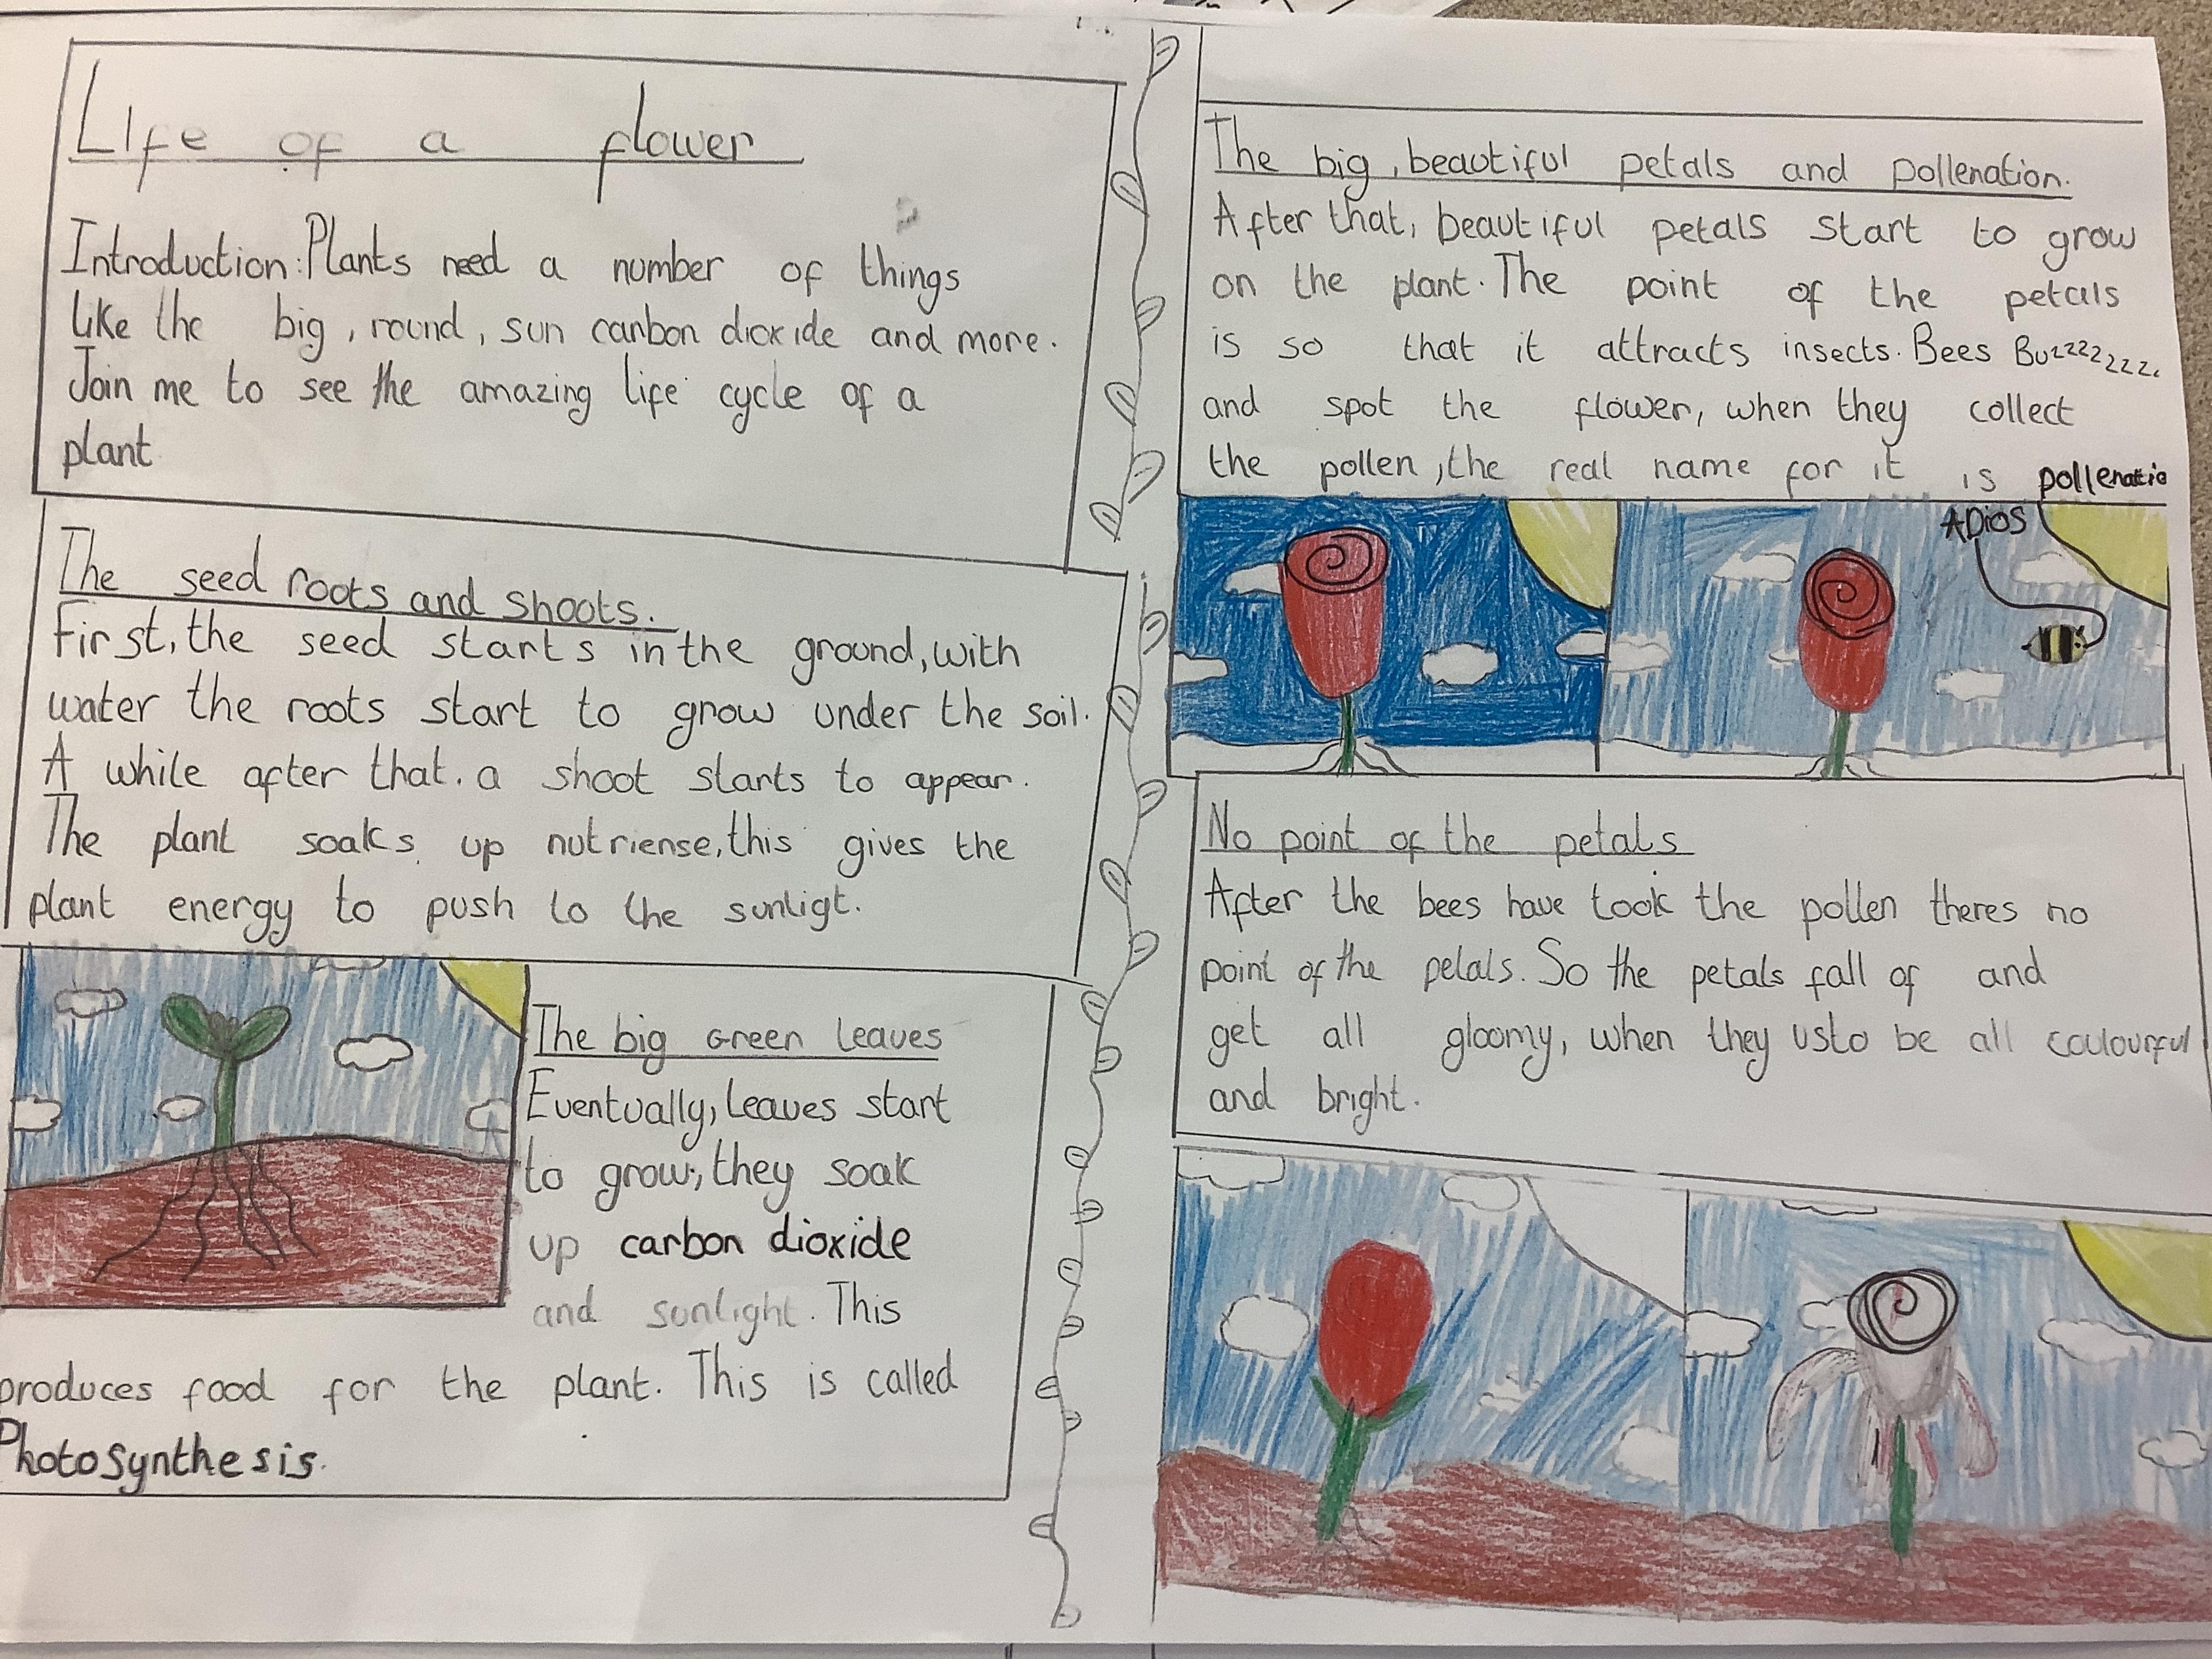 LIfe of a flower
Introduction: Plants need a number of things
like the big, round, sun canbon dioxide and more.
Join me to see the amazing life cycle of a
plant
The seed roots and shoots.
First, the seed starts in the ground, with
water the roots start to grow under the soil.
A while after that. a shoot starts to appear.
The plant soaks up nutriense, this gives the
plant energy to push to the sunligt.
The big Green leaves
Eventually, leaves start
to grow, they soak
up carbon dioxide
and sunlight. This
produces food for the plant. This is called
Photosynthesis.
The big, beautiful petals and pollenation.
After that, beautiful petals start to grow
on the plant. The point of the petals
is so that it attracts insects. Bees Buzzzzzzz.
and spot the flower, when they collect
the pollen, the real name for it is pollenatio
ADios
No point of the petals
After the bees have took the pollen theres no
point of the petals. So the petals fall of and
get all gloomy, when they usto be all coulourful
and bright.